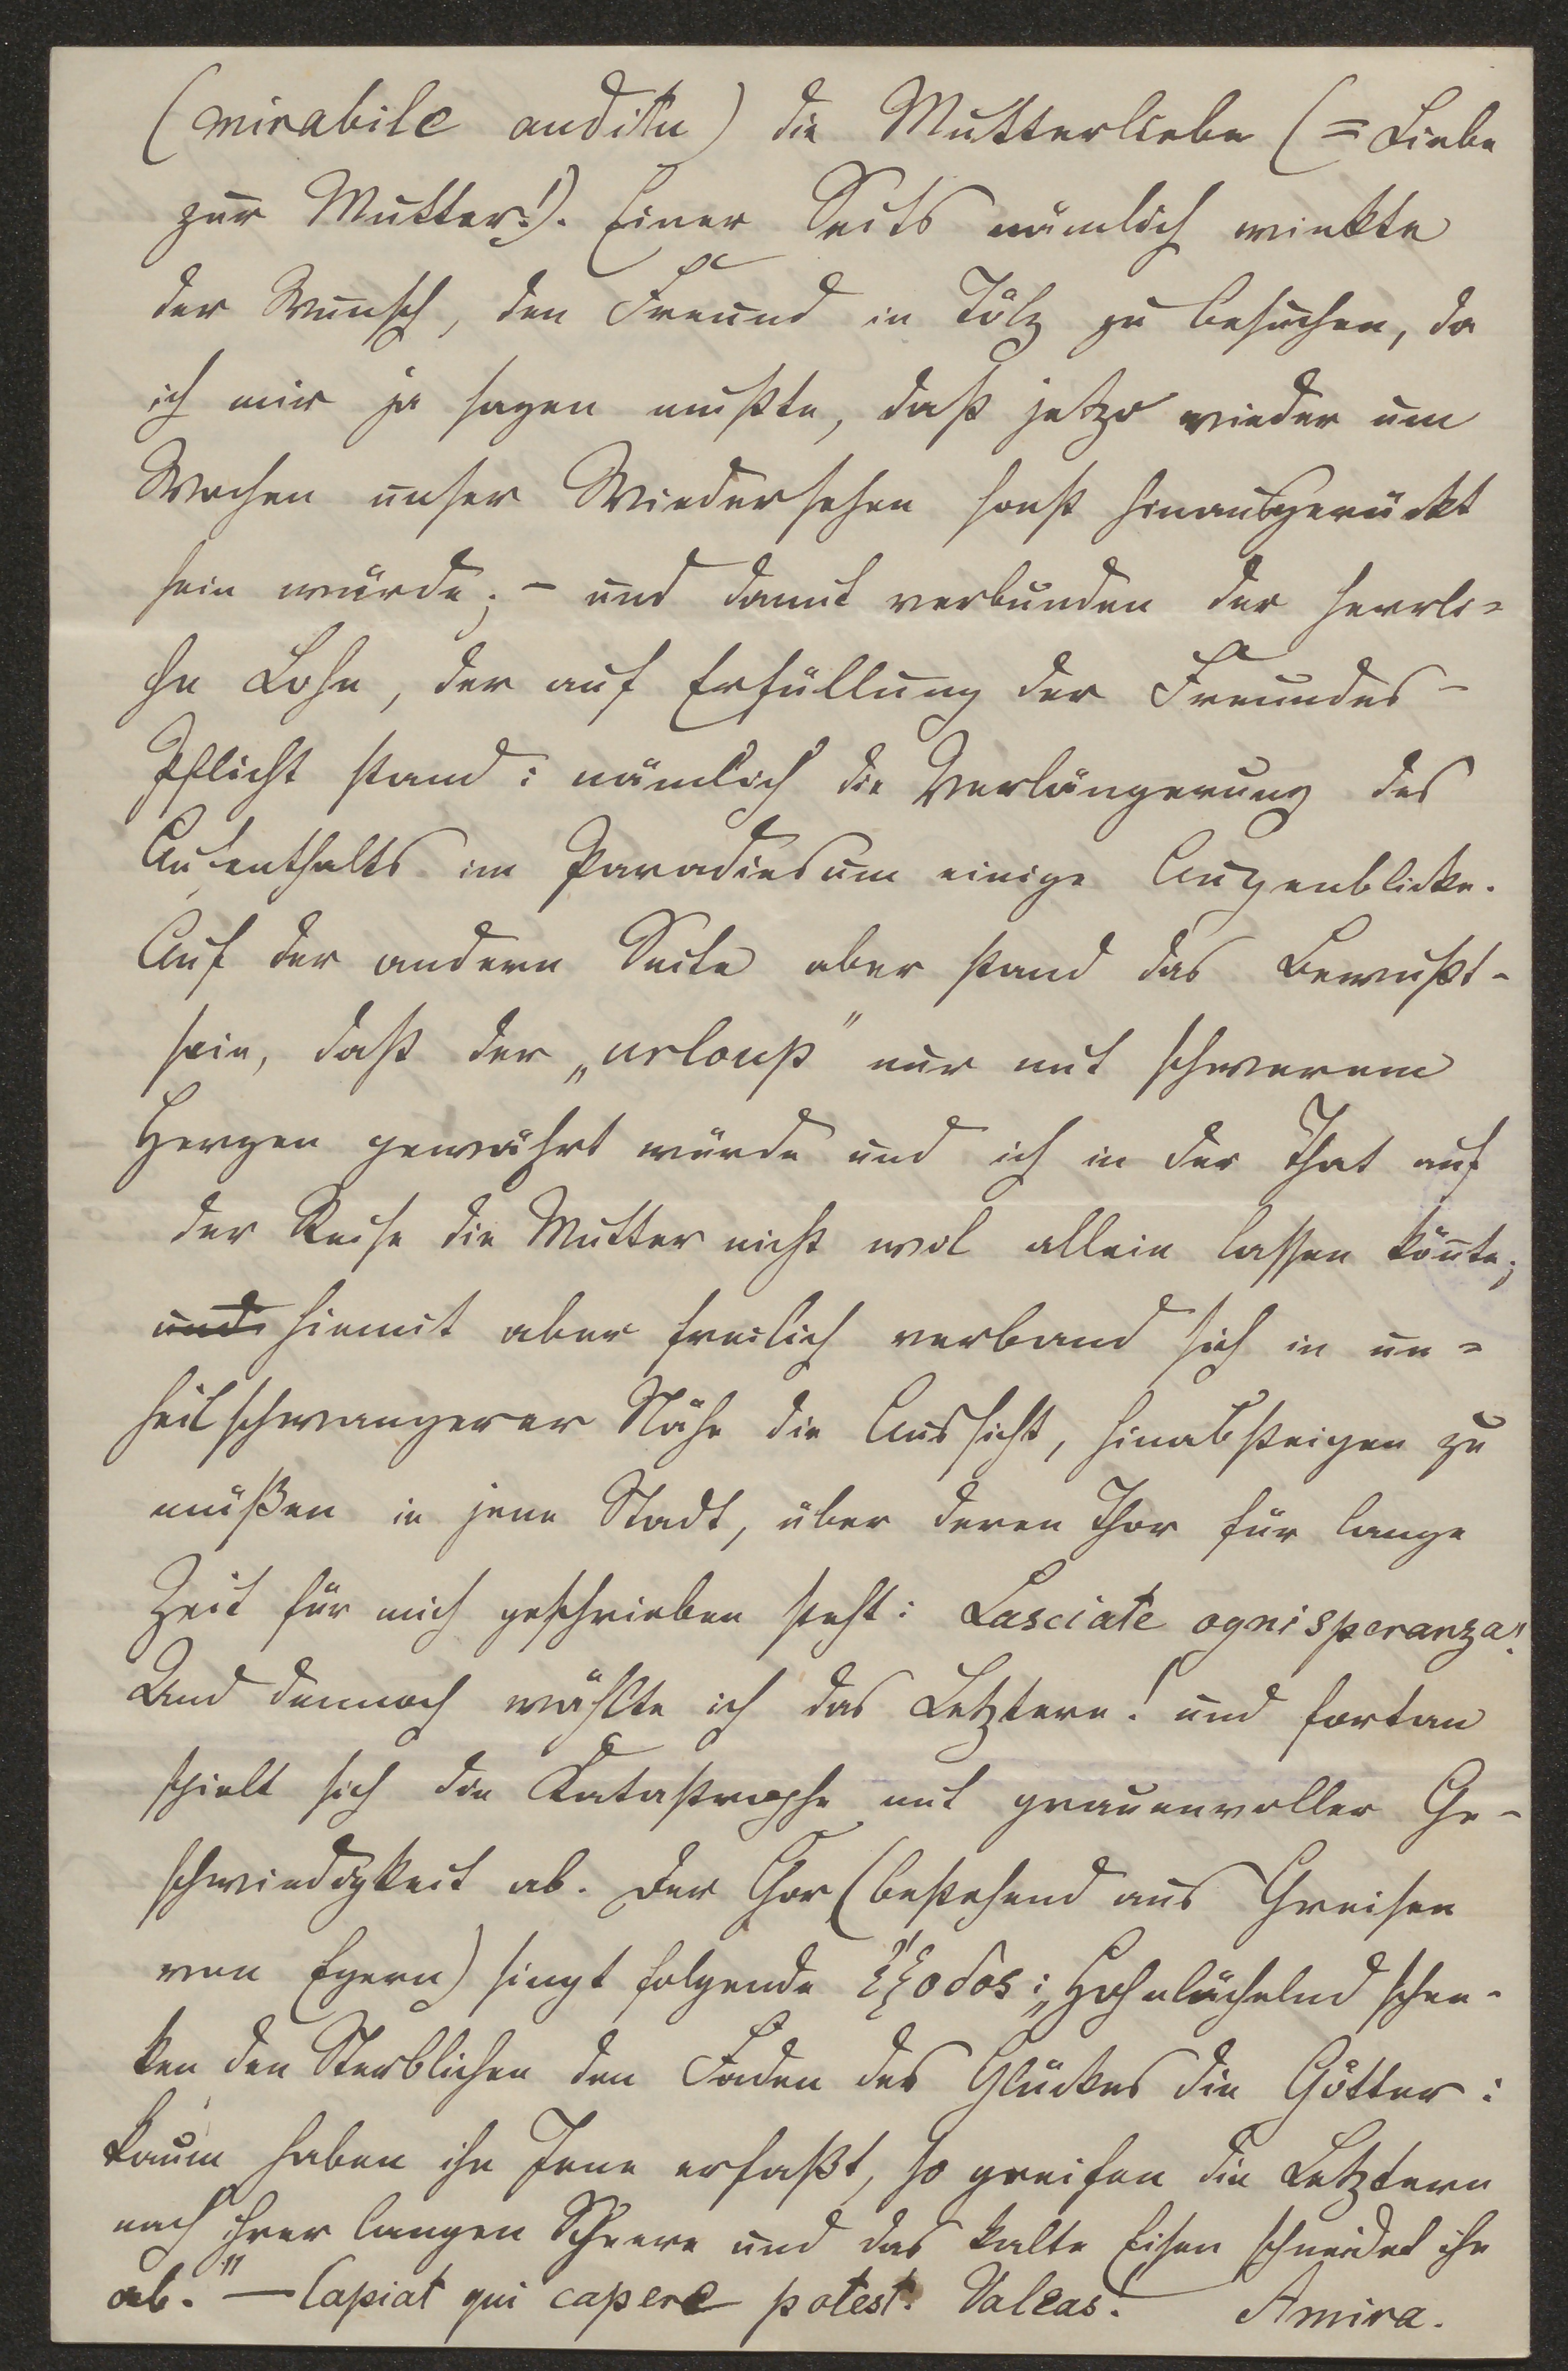 (mirabile auditu) die Mutterliebe (= Liebe
zur Mutter!). Einer Seits nämlich winkte
der Wunsch, den Freund in Tölz zu besuchen, da
ich mir ja sagen mußte, daß jetzo wieder um
Wochen unser Wiedersehen sonst hinausgerückt
sein würde; – und damit verbunden der herrli=
che Lohn, der auf Erfüllung der Freundes-
Pflicht stand: nämlich die Verlängerung des
Aufenthalts im Paradies um einige Augenblicke.
Auf der andern Seite aber stand das Bewußt-
sein, daß der „urloup" nur mit schwerem
Herzen gewährt würde und ich in der That auf
der Reise die Mutter nicht wol allein lassen könnte;
und hiemit aber freilich verband sich in un=
heilschwangerer Nähe die Aussicht, hinabsteigen zu
müßen in jene Stadt, über deren Thor für lange
Zeit für mich geschrieben steht: Lasciate ogni speranza!
Und dennoch wählte ich das Letztere! und fortan
spielt sich die Katastrophe mit grauenvoller Ge-
schwindigkeit ab. Der Chor (bestehend aus Greisen
von Egern) singt folgende ἔξοδος: „Hohnlächelnd schen-
ken den Sterblichen den Faden des Glückes die Götter:
kaum haben ihn Jene erfaßt, so greifen die Letztern
nach ihrer langen Scheere und das kalte Eisen schneidet ihn
ab." — Capiat qui capere potest. Valeas. Amira.